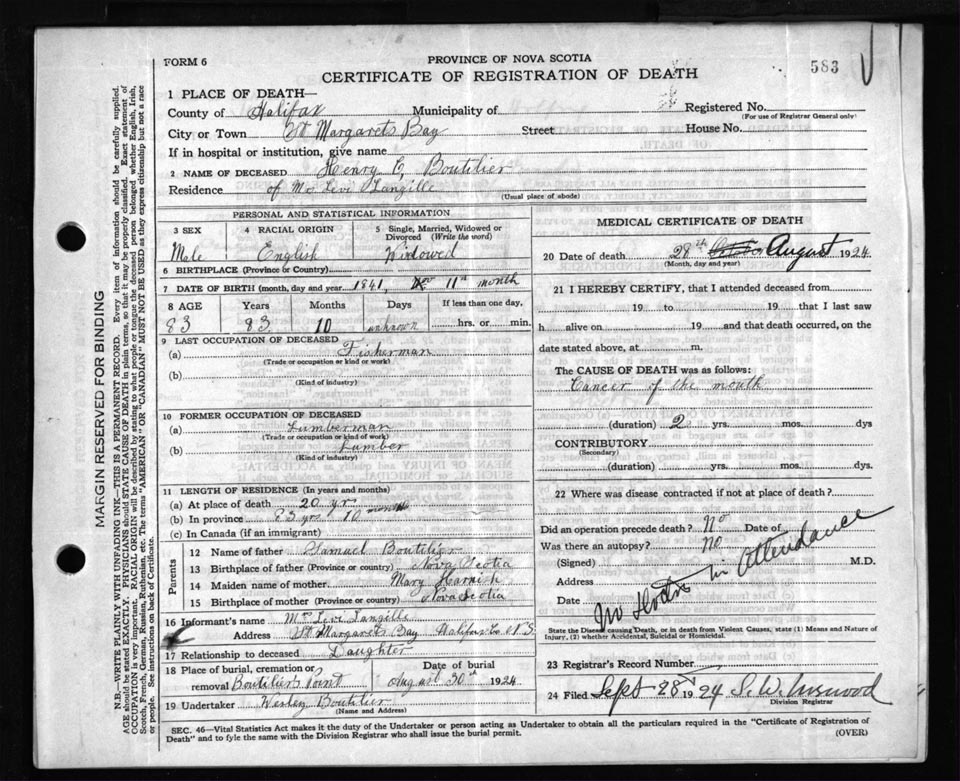 FORM 6
PROVINCE OF NOVA SCOTIA
CERTIFICATE OF REGISTRATION OF DEATH
583
1 PLACE OF DEATH—
County of Halifax Municipality of Registered No.
(For use of Registrar General only)
City or Town St Margarets Bay Street House No.
If in hospital or institution, give name
2 NAME OF DECEASED Henry C, Boutilier
Residence of Mrs Levi Langille
(Usual place of abode)
PERSONAL AND STATISTICAL INFORMATION
3 SEX 4 RACIAL ORIGIN 5 Single, Married, Widowed or
Divorced (Write the word)
Male English Widowed
6 BIRTHPLACE (Province or Country)
7 DATE OF BIRTH (month, day and year) 1841, 11th month
8 AGE Years Months Days If less than one day,
83 83 10 unknown hrs. or min.
9 LAST OCCUPATION OF DECEASED
(a) Fisherman
(Trade or occupation or kind of work)
(b)
(Kind of industry)
10 FORMER OCCUPATION OF DECEASED
(a) Lumberman
(Trade or occupation or kind of work)
(b) Lumber
(Kind of industry)
11 LENGTH OF RESIDENCE (In years and months)
(a) At place of death 20 yrs
(b) In province 83 yrs 10 months
(c) In Canada (if an immigrant)
Parents
12 Name of father Samuel Boutilier
13 Birthplace of father (Province or country) Nova Scotia
14 Maiden name of mother Mary Harnish
15 Birthplace of mother (Province or country) Nova Scotia
16 Informant's name Mrs Levi Langille
Address St Margarets Bay Halifax Co N.S.
17 Relationship to deceased Daughter
18 Place of burial, cremation or Date of burial
removal Boutiliers Point August 30th 1924
19 Undertaker Wesley Boutilier
(Name and Address)
MEDICAL CERTIFICATE OF DEATH
20 Date of death 28th August 1924
(Month, day and year)
21 I HEREBY CERTIFY, that I attended deceased from
19 to 19 that I last saw
h alive on 19 and that death occurred, on the
date stated above, at m.
The CAUSE OF DEATH was as follows:
Cancer of the mouth
(duration) 2 yrs. mos. dys
CONTRIBUTORY
(Secondary)
(duration) yrs. mos. dys.
22 Where was disease contracted if not at place of death?
Did an operation precede death? No Date of
Was there an autopsy? No
(Signed) M.D.
Address
Date
No Doctor in Attendance
State the Disease causing Death, or in death from Violent Causes, state (1) Means and Nature of
Injury, (2) whether Accidental, Suicidal or Homicidal.
23 Registrar's Record Number
24 Filed Sept 28 1924 S. W.
Division Registrar
SEC. 46—Vital Statistics Act makes it the duty of the Undertaker or person acting as Undertaker to obtain all the particulars required in the "Certificate of Registration of
Death" and to fyle the same with the Division Registrar who shall issue the burial permit.
(OVER)
MARGIN RESERVED FOR BINDING
N.B.—WRITE PLAINLY, WITH UNFADING INK—THIS IS A PERMANENT RECORD. Every item of information should be carefully supplied.
AGE should be stated EXACTLY. PHYSICIANS should STATE CAUSE OF DEATH in plain terms, so that it may be properly classified. Exact statement of
OCCUPATION is very important. RACIAL ORIGIN will be described by stating to what people or tongue the deceased person belonged whether English, Irish,
Scotch, French, German, Russian, Ruthenian, etc. The terms "AMERICAN" OR "CANADIAN" MUST NOT BE USED as they express citizenship but not a race
or people. See instructions on back of Certificate.